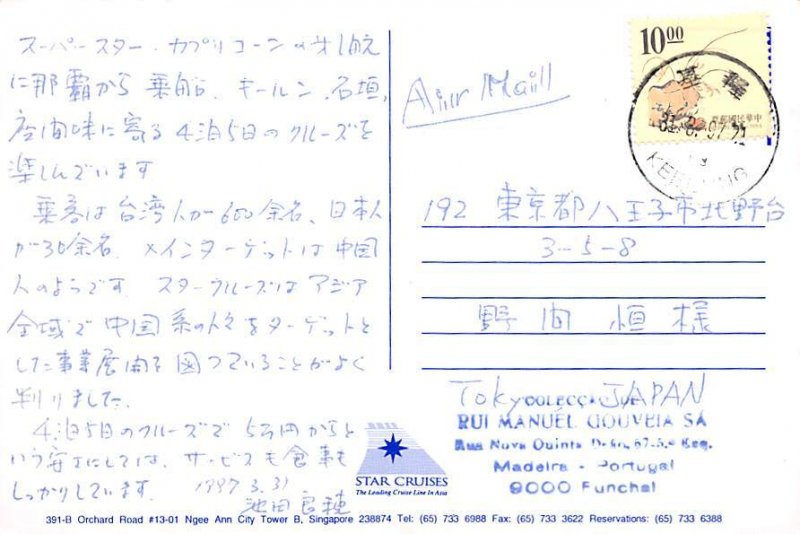 スーパースター・カプリコーンの第1航
に那覇から乗船、キールン、石垣,
座間味に寄る4泊5日のクルーズを
楽しんでいます
乗客は台湾人が600余名、日本人
が30余名、メインターゲットは中国
人のようです. スタークルーズはアジア
全域で中国系の人々をターゲットと
した事業展開を図っていることがよく
判りました.
4泊5日のクルーズで 5万円からと
いう安さにしては、サービスも食事も
しっかりしています.
1997 3.31
池田良穂
Aiir Maill
10.00
中華民國郵票
基隆
KEELUNG
192 東京都八王子市北野台
3-5-8
野間 恒 様
Tokyo JAPAN
RUI MANUEL GOUVEIA SÁ
Rua Nova Quinta
Madeira - Portugal
9000 Funchal
STAR CRUISES
The Leading Cruise Line In Asia
391-B Orchard Road #13-01 Ngee Ann City Tower B, Singapore 238874 Tel: (65) 733 6988 Fax: (65) 733 3622 Reservations: (65) 733 6388